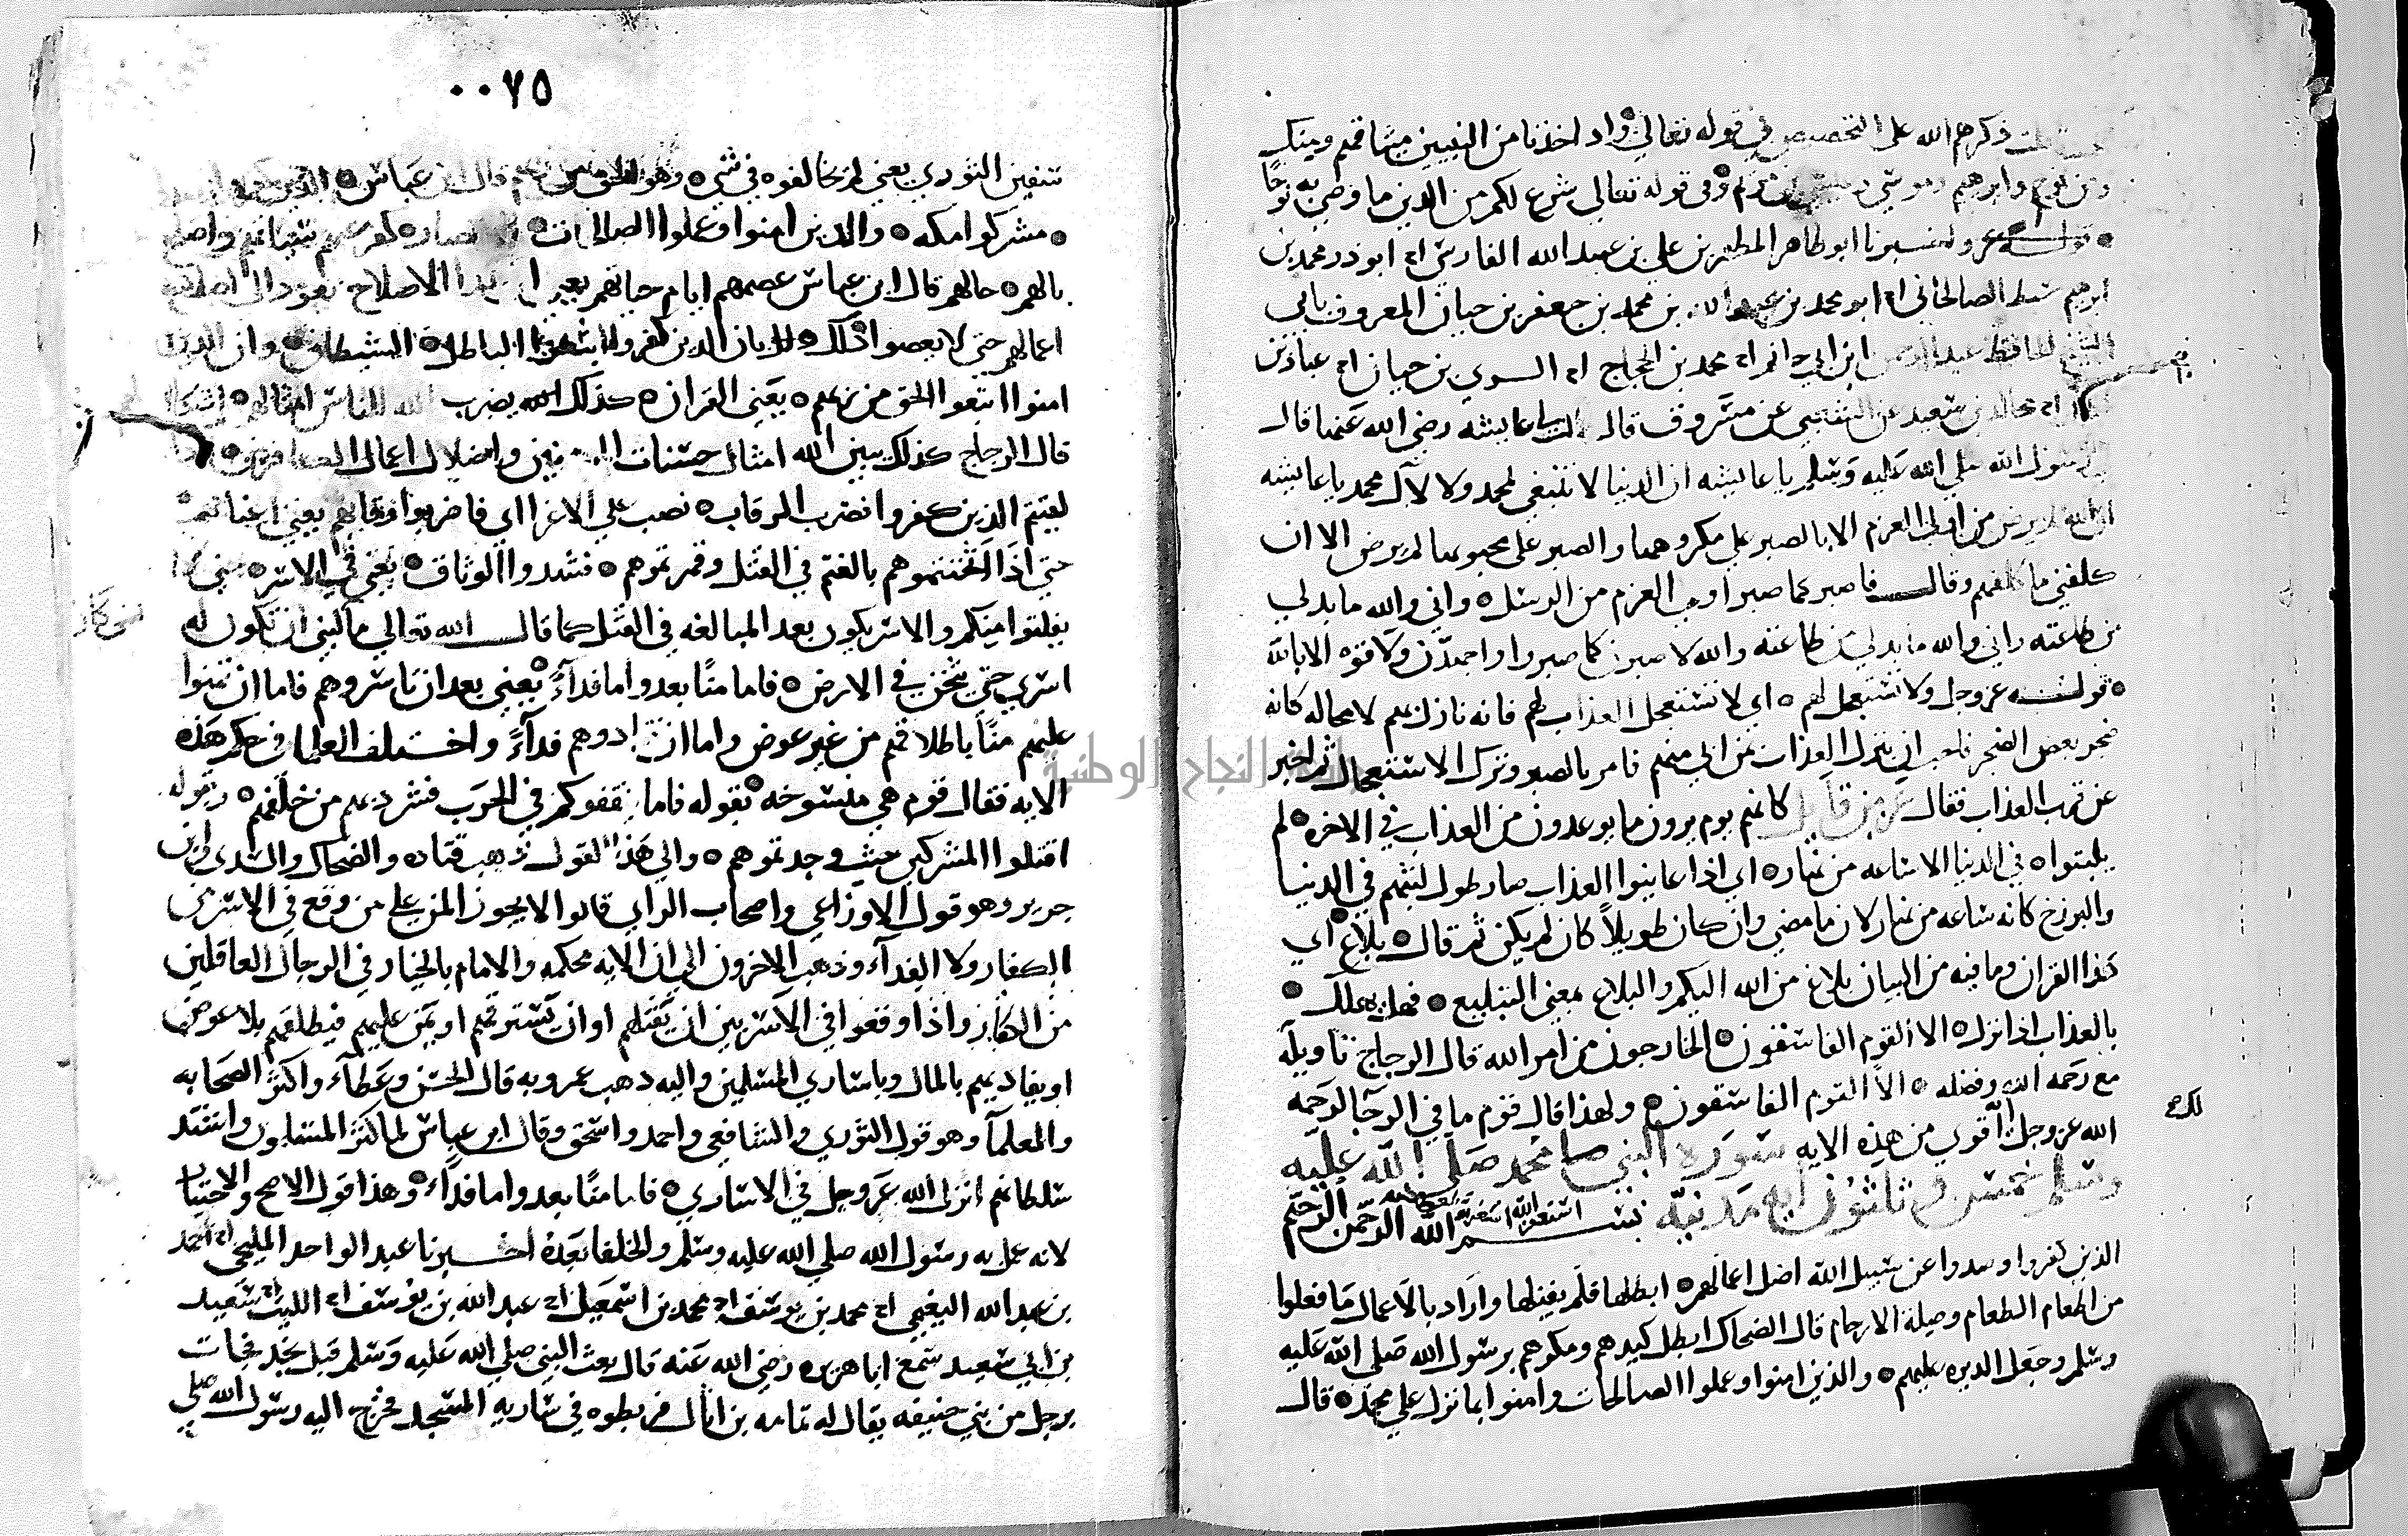 ذكرهم الله على التخصيص في قوله تعالى واذ اخذنا من النبيين ميثاقهم ومنك
ومن نوح وابرهيم وموسى وفي قوله تعالى شرع لكم من الدين ما وصى به نوحا
قوله عز وجل اخبرنا ابو طاهر المطهر بن علي بن عبيد الله الفارسي انا ابو ذر محمد بن
ابرهيم سبط الصالحاني انا ابو محمد بن عبد الله بن محمد بن جعفر بن حيان المعروف بابي
الشيخ الحافظ عبد الرحمن ابن ابي حاتم انا محمد بن الحجاج انا السري بن حيان انا عباد بن
انا مجالد بن سعيد عن الشعبي عن مسروق قال قالت لي عايشه رضي الله عنها قال
رسول الله صلى الله عليه وسلم يا عايشه ان الدنيا لا تنبغي لمحمد ولا لآل محمد يا عايشه
ان الله لم يرض من اولي العزم الا بالصبر على مكروهها والصبر على محبوبها لم يرض الا ان
كلفني ما كلفهم وقال فاصبر كما صبر اولوا العزم من الرسل واني والله ما بد لي
من طاعته واني والله ما بد لي من طاعته والله لاصبرن كما صبروا واجهدن ولا قوة الا بالله
قوله عز وجل ولا تستعجل لهم اي لا تستعجل العذاب لهم فانه نازل بهم لا محاله كانه
ضجر بعض الضجر فاحب ان ينزل العذاب بمن ابى منهم فامر بالصبر وترك الاستعجال ثم اخبر
عن قرب العذاب فقال كانهم يوم يرون ما يوعدون من العذاب في الاخره لم
يلبثوا في الدنيا الا ساعه من نهار اي اذا عاينوا العذاب صار طول لبثهم في الدنيا
والبرزخ كانه ساعه من نهار لان ما مضى وان كان طويلاً كان لم يكن ثم قال بلاغ اي
هذا القران وما فيه من البيان بلاغ من الله اليكم والبلاغ بمعنى التبليغ فهل يهلك
بالعذاب اذا نزل الا القوم الفاسقون الخارجون من امر الله قال الزجاج تاويله
مع رحمه الله وفضله الا القوم الفاسقون ولهذا قال قوم ما في الرجا لرحمه
الله عز وجل اقوى من هذه الايه سورة النبي محمد صلى الله عليه
وسلم خمس و ثلثون ايه مدنيه بسم الله الرحمن الرحيم
الذين كفروا وصدوا عن سبيل الله اضل اعمالهم ابطلها فلم يقبلها واراد بالاعمال ما فعلوا
من اطعام الطعام وصلة الارحام قال الضحاك ابطل كيدهم ومكرهم برسول الله صلى الله عليه
وسلم وجعل الديره عليهم والذين امنوا وعملوا الصالحات وامنوا بما نزل على محمد قال
٠٠٧٥
سفين الثوري يعني لم يخالفوه في شي وهو الحق من ربهم قال ابن عباس الذين كفروا
مشركوا مكه والذين امنوا وعملوا الصالحات الانصار كفر عنهم سيئاتهم واصلح
بالهم حالهم قال ابن عباس عصمهم ايام حياتهم يعني ان هذا الاصلاح يعود الى اصلاح
اعمالهم حتى لا يعصوا ذلك بان الذين كفروا اتبعوا الباطل الشيطان وان الذين
امنوا اتبعوا الحق من ربهم يعني القران كذلك يضرب الله للناس امثالهم اشكالهم
قال الزجاج كذلك يبين الله امثال حسنات المومنين واضلال اعمال الكافرين
لقيتم الذين كفروا فضرب الرقاب نصب على الاغرا اي فاضربوا رقابهم يعني اعناقهم
حتى اذا اثخنتموهم بالغتم في القتل وقهرتموهم فشدوا الوثاق يعني في الاسر حتى لا
يفلتوا منكم والاسر يكون بعد المبالغه في القتل كما قال الله تعالى ما كان لنبي ان تكون له
اسرى حتى يثخن في الارض فاما مناً بعد واما فداءً يعني بعد ان تاسروهم فاما ان تمنوا
عليهم مناً باطلاقهم من غير عوض واما ان تفادوهم فداءً واختلف العلما في حكم هذه
الايه فقال قوم هي منسوخه بقوله فاما تثقفنهم في الحرب فشرد بهم من خلفهم وبقوله
اقتلوا المشركين حيث وجدتموهم والى هذا القول ذهب قتاده والضحاك والسدي وابن
جريج وهو قول الاوزاعي واصحاب الراي قالوا لا يجوز المن على من وقع في الاسر من
الكفار ولا الفداء وذهب الاخرون الى ان الايه محكمه والامام بالخيار في الرجال العاقلين
من الكفار اذا وقعوا في الاسر بين ان يقتلهم او ان يسترقهم او يمن عليهم فيطلقهم بلا عوض
او يفاديهم بالمال وباساري المسلمين واليه ذهب عمر وبه قال الحسن وعطاء واكثر الصحابه
والعلمآ وهو قول الثوري والشافعي واحمد واسحق وقال ابن عباس لما كثر المسلمون واشتد
سلطانهم انزل الله عز وجل في الاساري فاما مناً بعد واما فداء وهذا قول الاصح والاختيار
لانه عمل به رسول الله صلى الله عليه وسلم والخلفا بعده اخبرنا عبد الواحد المليحي انا احمد
بن عبد الله النعيمي انا محمد بن يوسف انا محمد بن اسمعيل انا عبد الله بن يوسف انا الليث انا سعيد
بن ابي سعيد سمع ابا هريره رضي الله عنه قال بعث النبي صلى الله عليه وسلم قبل نجد فجات
برجل من بني حنيفه يقال له ثمامه بن اثال فربطوه في ساريه المسجد فخرج اليه رسول الله صلى